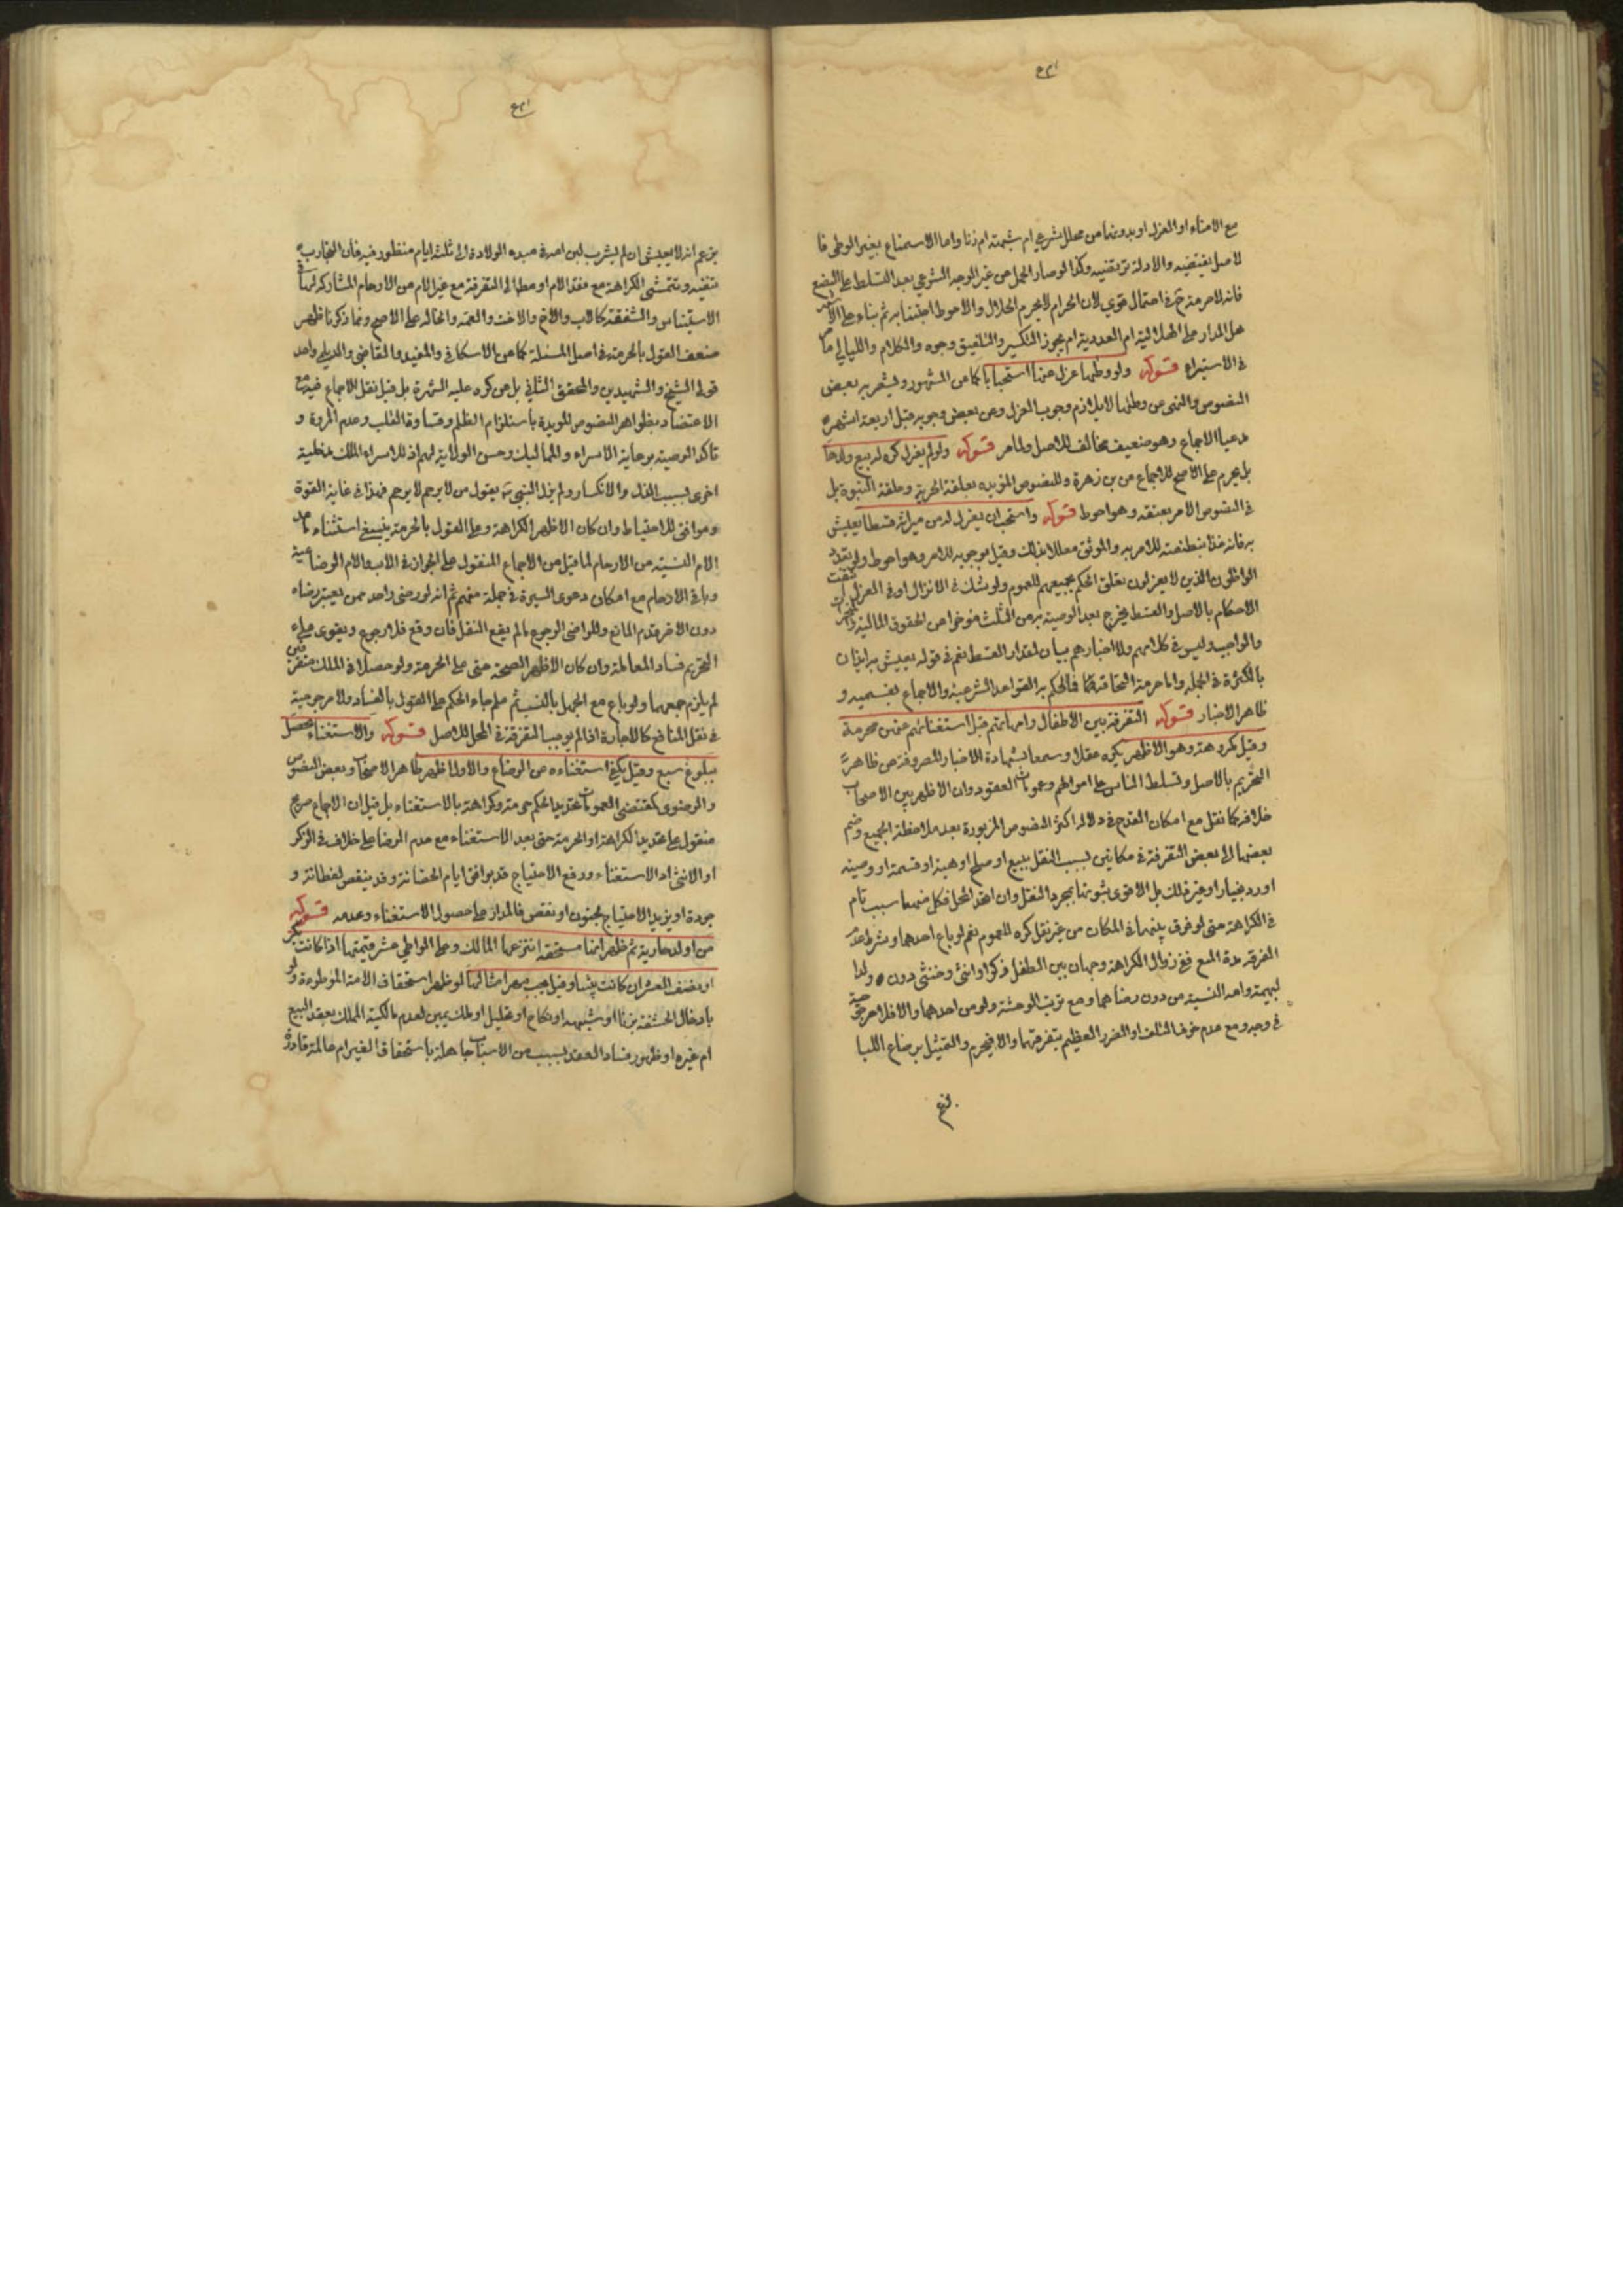 مع الامناء او العزل او بدونهما من محلل شرعي ام شبهة ام زنا واما الاستمتاع بغير الوطي فا
لاصل يقتضيه والادلة ترتقنيه وكذا لو صار الحمل من غير الوجه الشرعي بعد التسلط على البضع
فانه لا حرمة ثمة في احتمال قوي لان الحرام لا يحرم الحلال والاحوط اجتنابه ثم بناء على
هل المدار على الهلالية ام العددية ام يجوز التكسير والتلفيق وجوه والكلام والليالي ما مر
في الاستبراء قوله ولو وطئها عزل عنها استحبابا كما عن المشهور ويشعر به بعض
النصوص والنهي عن وطئها لا يلازم وجوب العزل وعن بعض وجوبه قبل اربعة اشهر
مدعيا الاجماع وهو ضعيف مخالف للاصل ولما مر قوله ولو لم يعزل كره له بيع ولدها
بل يحرم على الاصح للاجماع من بن زهرة وللنصوص المؤيده بعلقة الحرية وعلقة البنوة بل
في النصوص الامر بعتقه وهو احوط قوله واستحب ان يعزل له من ميراثه قسطا يعيش
به فانه غذاه بنطفته للامر به والموثق معللا بذلك وقيل بوجوبه للامر وهو احوط ولو تعدد
الواطئون الذين لا يعزلون تعلق الحكم بجميعهم للعموم ولو شك في الانزال او في العزل
الاحكام بالاصل والقسط يخرج بعد الوصية به من الثلث مؤخرا عن الحقوق المالية
والواجب وليس في كلامهم ولا اخبارهم بيان لمقدار القسط نعم في قوله يعيش به ايذان
بالكثرة في الجملة واما حرمة
فالحكم به القواعد الشرعية والاجماع بقسميه و
ظاهر الاخبار قوله التفرقة بين الاطفال وامهاتهم قبل استغنائهم عنهن محرمة
وقيل مكروهة وهو الاظهر يكره عقلا وسمعا بشهادة الاخبار المصروفة عن ظاهر
التحريم بالاصل وتسلط الناس على اموالهم وعمومات العقود وان الاظهر بين الاصحاب
خلافه كما نقل مع امكان القدح في دلالة اكثر النصوص المزبورة بعد ملاحظة الجميع وضم
بعضها الى بعض التفرقة في مكانين بسبب النقل ببيع او صلح او هبة او قسمة او وصية
او رد بخيار او غير ذلك بل الاقوى ثبوتها بمجرد النقل وان اتحد المحل فكل منهما سبب تام
في الكراهة حتى لو فرق بينهما في المكان من غير نقل كره للعموم نعم لو باع احدهما وشرط عدم
الفرقة مدة المنع ففي زوال الكراهة وجهان بين الطفل ذكرا او انثى وخنثى دون ولد
البهيمة وامه النسبية من دون رضاهما ومع ترتب الوحشة ولو من احدهما والا فلا مرجوحية
في وجه ومع عدم خوف التلف او الضرر العظيم بتفرقتهما والا فيحرم والتمثيل برضاع اللبا
بزعم انه لا يعيش ان لم يشرب لبن امه في مبدء الولادة الى ثلثة ايام منظور فيه فان التجارب
تنفيه وتتمشى الكراهة مع فقد الام او مطلقا الى التفرقة مع غير الام من الارحام المشاركة لها في
الاستيناس والشفقة كالاب والاخ والاخت والعمة والخالة على الاصح ومما ذكرنا ظهر
ضعف القول بالحرمة في اصل المسئلة كما عن الاسكافي والمفيد والقاضي والديلمي واحد
قولي الشيخ والشهيدين والمحقق الثاني بل عن كره عليه الشهرة بل قيل نقل الاجماع فيه مع
الاعتضاد بظواهر النصوص المؤيدة باستلزام الظلم وقساوة القلب وعدم المروة و
تاكد الوصية برعاية الاسراء والمماليك وحسن الولاية لهم اذ للاسراء
اخرى بسبب الذل والانكسار ولم يزل النبي ص يقول من لا يرحم لا يرحم فهذا في غاية القوة
وموافق للاحتياط وان كان الاظهر الكراهة وعلى القول بالحرمة ينبغي استثناء ما عدا
الام النسبية من الارحام لما قيل من الاجماع المنقول على الجواز في الاب والام الرضاعية
وباقي الارحام مع امكان دعوى السيرة في جملة منهم ثم انه لو رضي واحد ممن يعتبر رضاه
دون الاخر قدم المانع وللراضي الرجوع ما لم يقع النقل فان وقع فلا رجوع ويقوى على
التحريم فساد المعاملة وان كان الاظهر الصحة حتى على الحرمة ولو حصلا في الملك متفرقين
لم يلزم جمعهما ولو باع مع الجهل بالنسب ثم علم جاء الحكم على القول بالفساد ولا مرجوحية
في نقل المنافع كالاجارة اذا لم يوجب التفرقة في المحل للاصل قوله والاستغناء يحصل
ببلوغ سبع وقيل يكفي استغناءه عن الرضاع والاول اظهر ظاهر الاصحاب وبعض النصوص
والرضوي كمقتضى العمومات تحديد الحكم حرمة وكراهة بالاستغناء بل قيل ان الاجماع صريح
منقول على تحديد الكراهة او الحرمة حتى بعد الاستغناء مع عدم الرضا على خلاف في الذكر
او الانثى اذ الاستغناء ورفع الاحتياج قد يوافق ايام الحضانة وقد ينقص لفطانة و
جودة او يزيد الاحتياج لجنون او نقص فالمدار على حصول الاستغناء وعدمه قوله
من اولد جارية ثم ظهر انها مستحقة انتزعها المالك وعلى الواطي عشر قيمتها اذا كانت بكر
او نصف العشر ان كانت ثيبا وقيل يجب مهر امثالها لو ظهر استحقاق الامة الموطوءة ولو
بادخال الحشفة بزنا او بشبهة او نكاح او تحليل او ملك يمين لعدم مالكية المملك بعقد البيع
ام غيره او ظهور فساد العقد بسبب من الاسباب جاهلة باستحقاق الغير ام عالمة قادرة